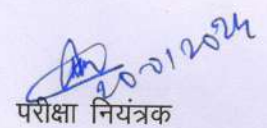 20-01-2024
परीक्षा नियंत्रक